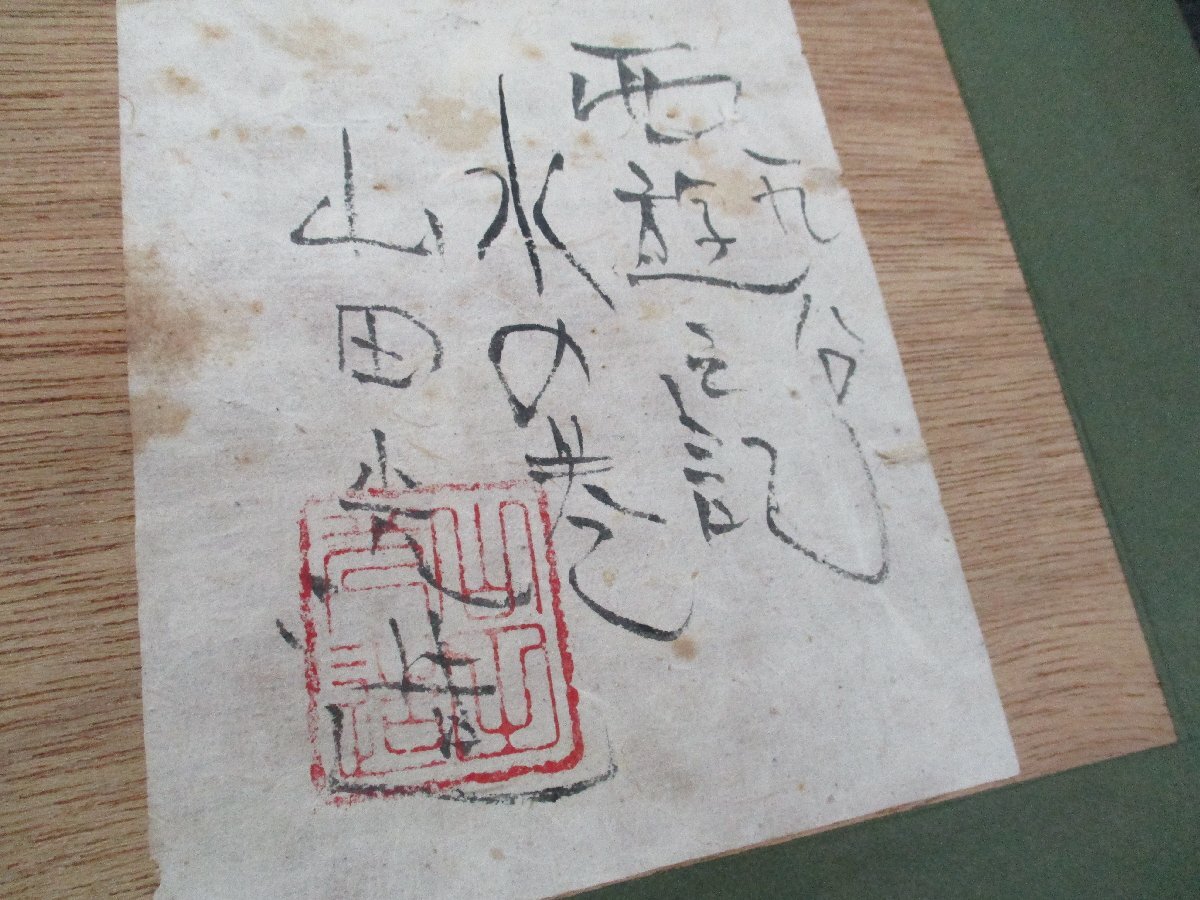 九谷
西遊之記
水の巻
山田